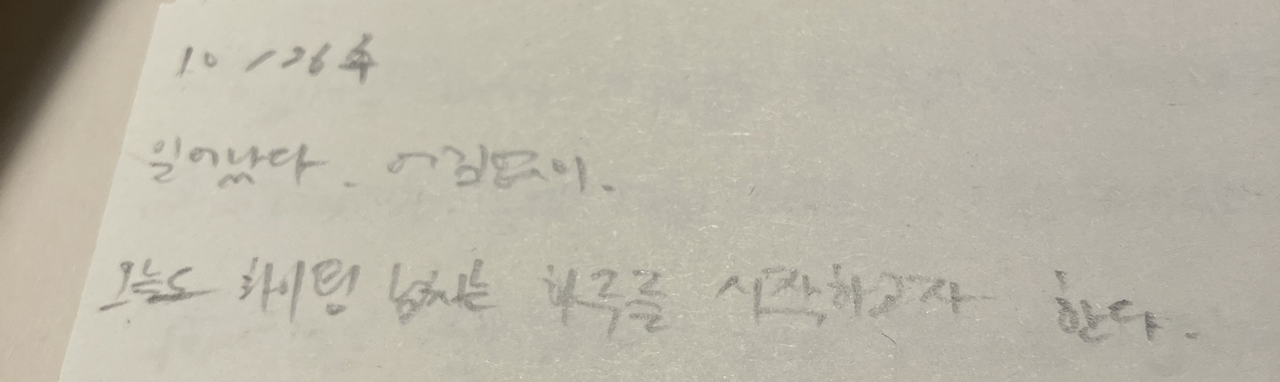 10/26 수
일어났다. 어김없이.
오늘도 화이팅 넘치는 하루를 시작하고자 한다.